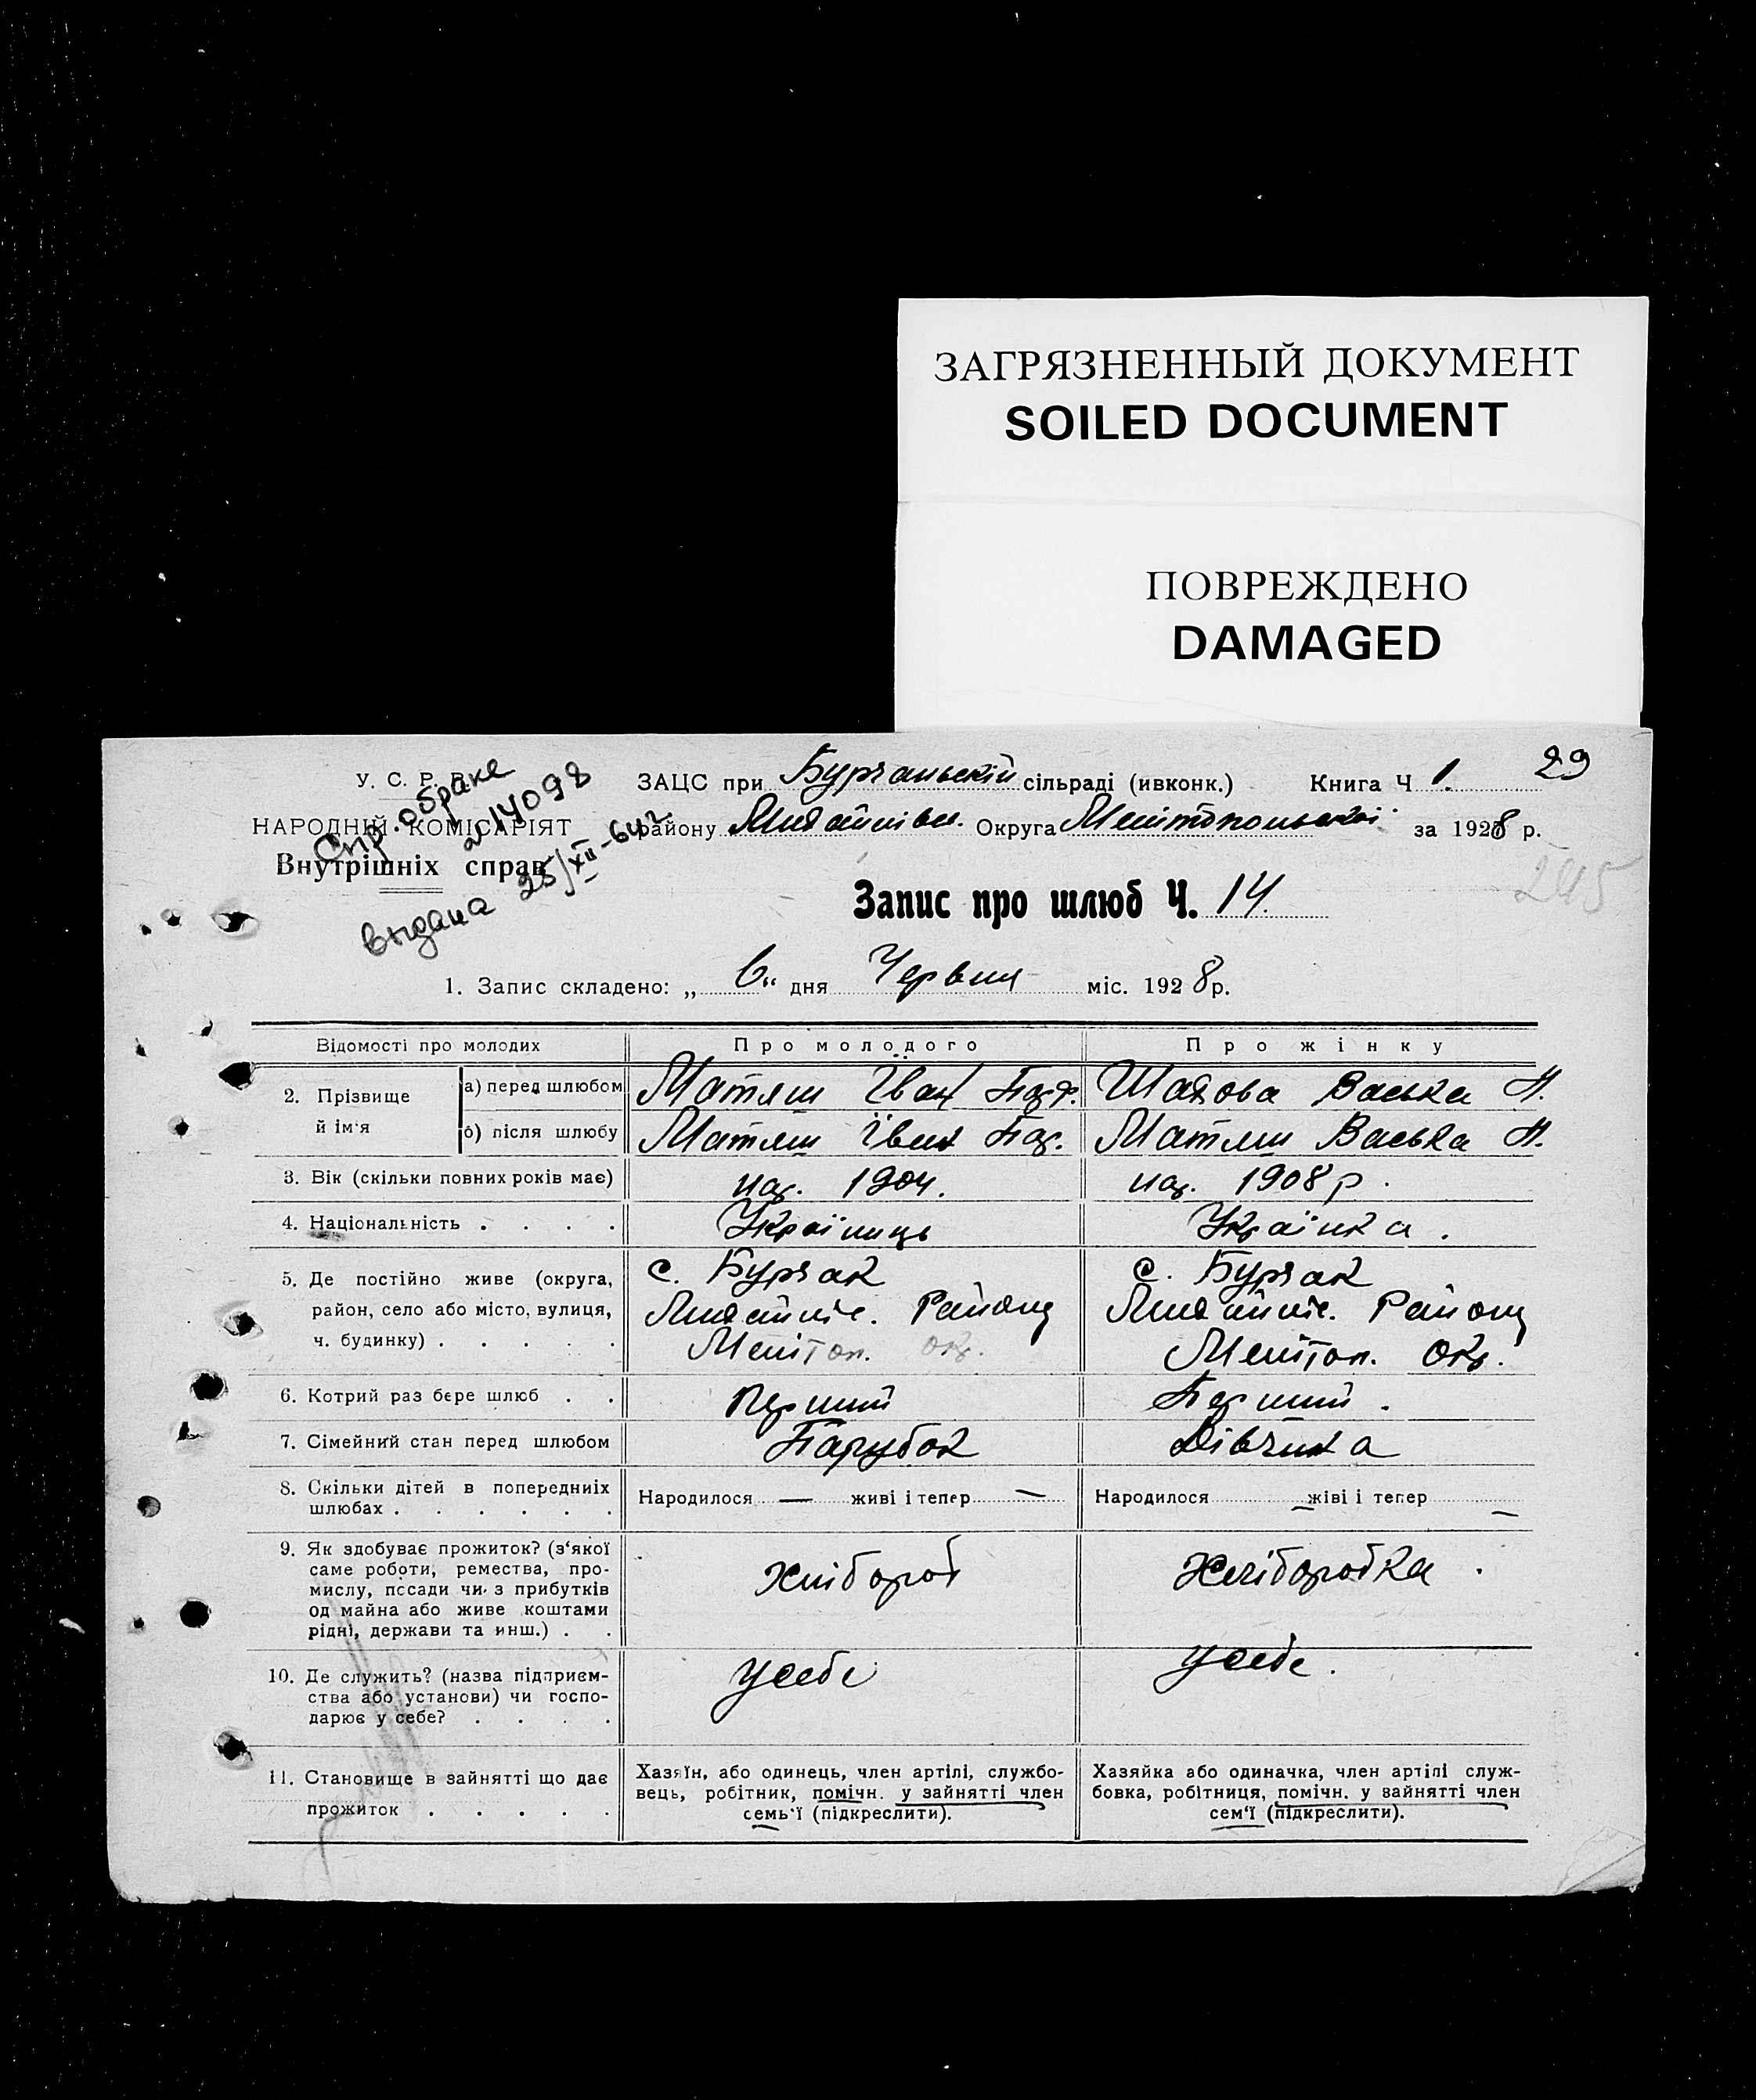 ЗАГРЯЗНЕННЫЙ ДОКУМЕНТ
SOILED DOCUMENT
ПОВРЕЖДЕНО
DAMAGED
У. С. Р. Р.
НАРОДНІЙ КОМІСАРІЯТ
Внутрішніх справ
Спр. о браке
214098
выдана 25/XII-64г
ЗАЦС при Бурчаньскій сільраді (ивконк.) Книга Ч 1. 29
району Округа Мелітопольскої за 1928 р.
245
Запис про шлюб Ч. 14.
1. Запис складено: „ 6 “ дня Червня міс. 1928 р.
Відомості про молодих Про молодого Про жінку
2. Прізвище й ім'я
а) перед шлюбом Матяш Іван Шахова Васька
б) після шлюбу Матяш Іван Матяш Васька
3. Вік (скільки повних років має) нар. 1904. нар. 1908 р.
4. Національність . . . . Українець Українка.
5. Де постійно живе (округа, с. Бурчак с. Бурчак
район, село або місто, вулиця, Району Району
ч. будинку) . . . . . Мелітоп. окр. Мелітоп. окр.
6. Котрий раз бере шлюб . . Перший Перший.
7. Сімейний стан перед шлюбом Парубок Дівчина
8. Скільки дітей в попередніх
шлюбах . . . . . . Народилося — живі і тепер — Народилося — живі і тепер —
9. Як здобуває прожиток? (з'якої
саме роботи, ремества, про-
мислу, посади чи з прибутків
од майна або живе коштами
рідні, держави та инш.) . . хлібороб хліборобка.
10. Де служить? (назва підприєм-
ства або установи) чи госпо-
дарює у себе? . . . . у себе у себе.
11. Становище в зайнятті що дає
прожиток . . . . .
Хазяїн, або одинець, член артілі, службо-
вець, робітник, помічн. у зайнятті член
семь'ї (підкреслити).
Хазяйка або одиначка, член артілі служ-
бовка, робітниця, помічн. у зайнятті член
сем'ї (підкреслити).